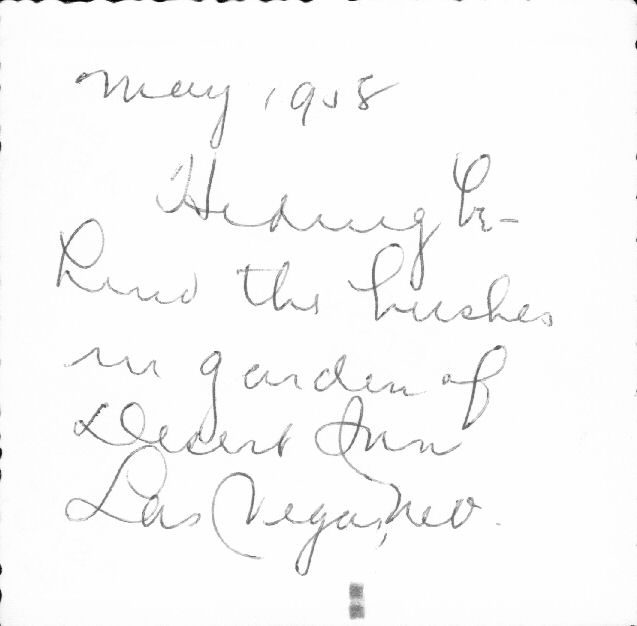 May 1958
Hiding be-
hind the bushes
in garden of
Desert Inn
Las Vegas, Nev.